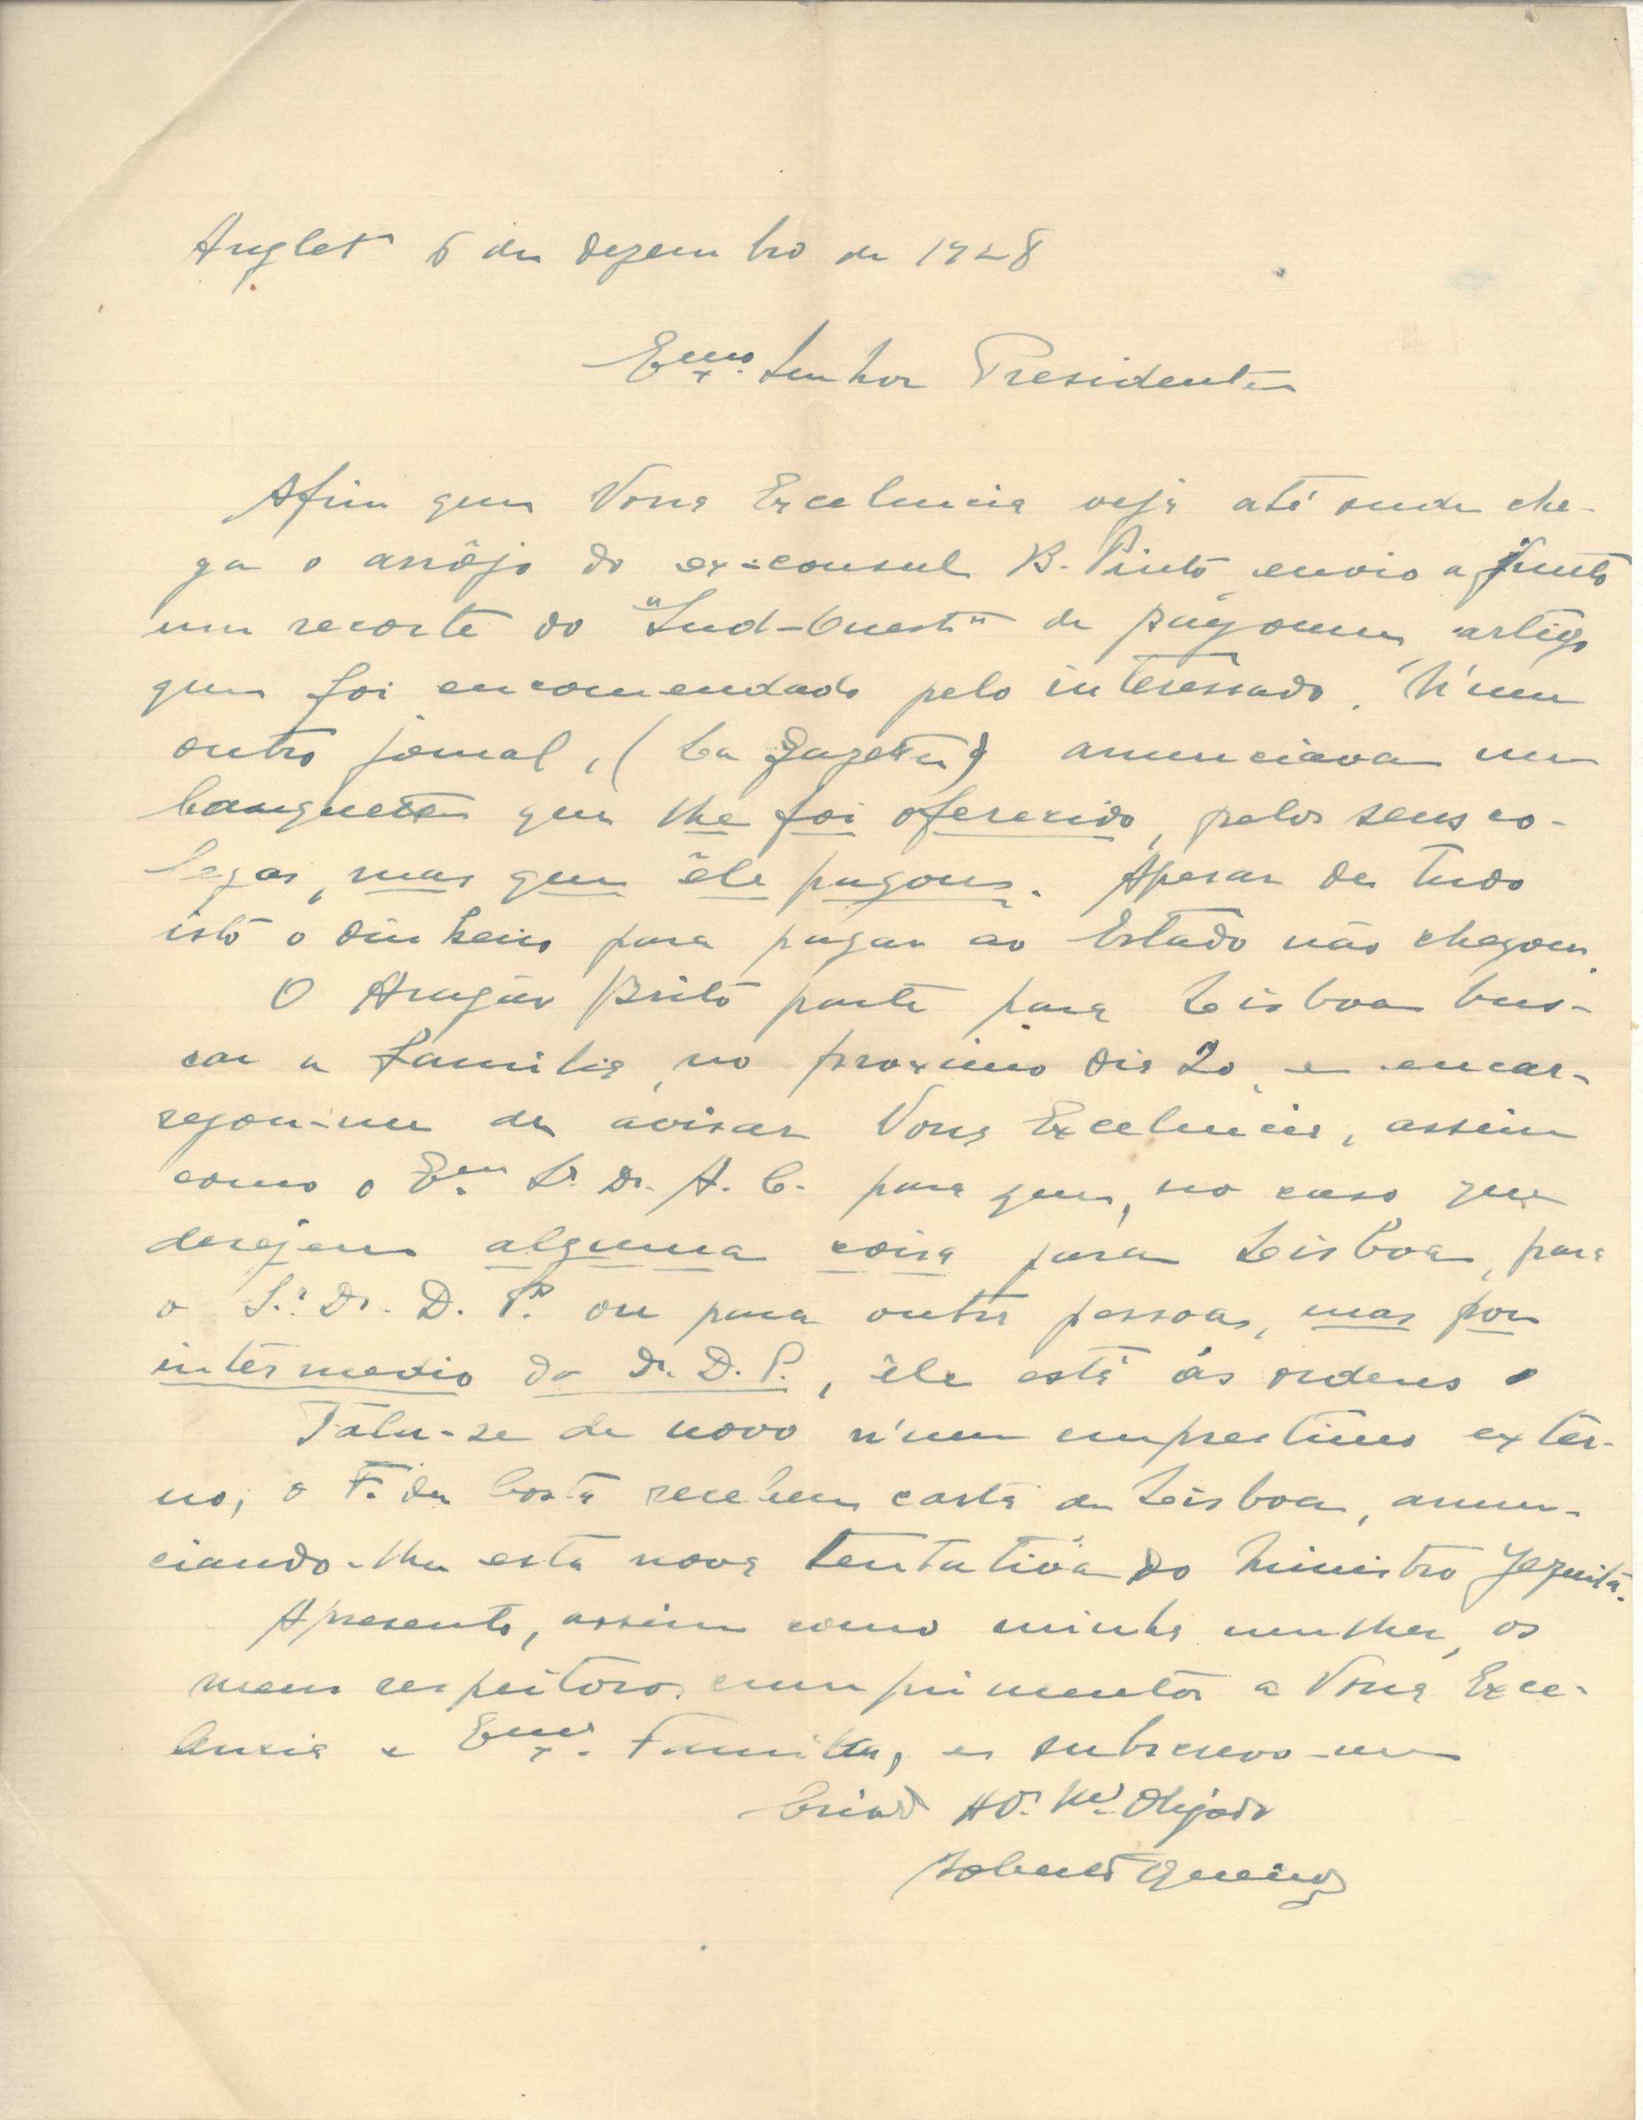 Anglet 6 de Dezembro de 1928
Exmo. Senhor Presidente
Afim que Vossa Excelencia veja até onde che-
ga o arrôjo do ex-consul B. Pinto envio a junto
um recorte do "Sud-Ouest" de Bayonne, artigo
que foi encomendado pelo interessado. N'um
outro jornal, (La Gazette) anunciava um
banquete que lhe foi oferecido, pelos seus co-
legas, mas que êle pagou. Apesar de tudo
isto o dinheiro para pagar ao Estado não chegou.
O Aragão Brito parte para Lisboa bus-
car a familia, no proximo dia 20, e encar-
regou-me de avisar Vossa Excelencia, assim
como o Exmo Sr. Dr. A. C. para que, no caso que
desejem alguma coisa para Lisboa, para
o S.r Dr. D. P. ou para outra pessoa, mas por
intermedio do Dr. D. P., êle está ás ordens.
Fala-se de novo n'um emprestimo exter-
no; o F. da Costa recebeu carta de Lisboa, anun-
ciando-lhe esta nova tentativa do Ministro Jezuita.
Apresento, assim como minha mulher, os
meus respeitosos cumprimentos a Vossa Exce-
lencia e Exma. Familia, e subscrevo-me
Criado At.º V.or Obrigado